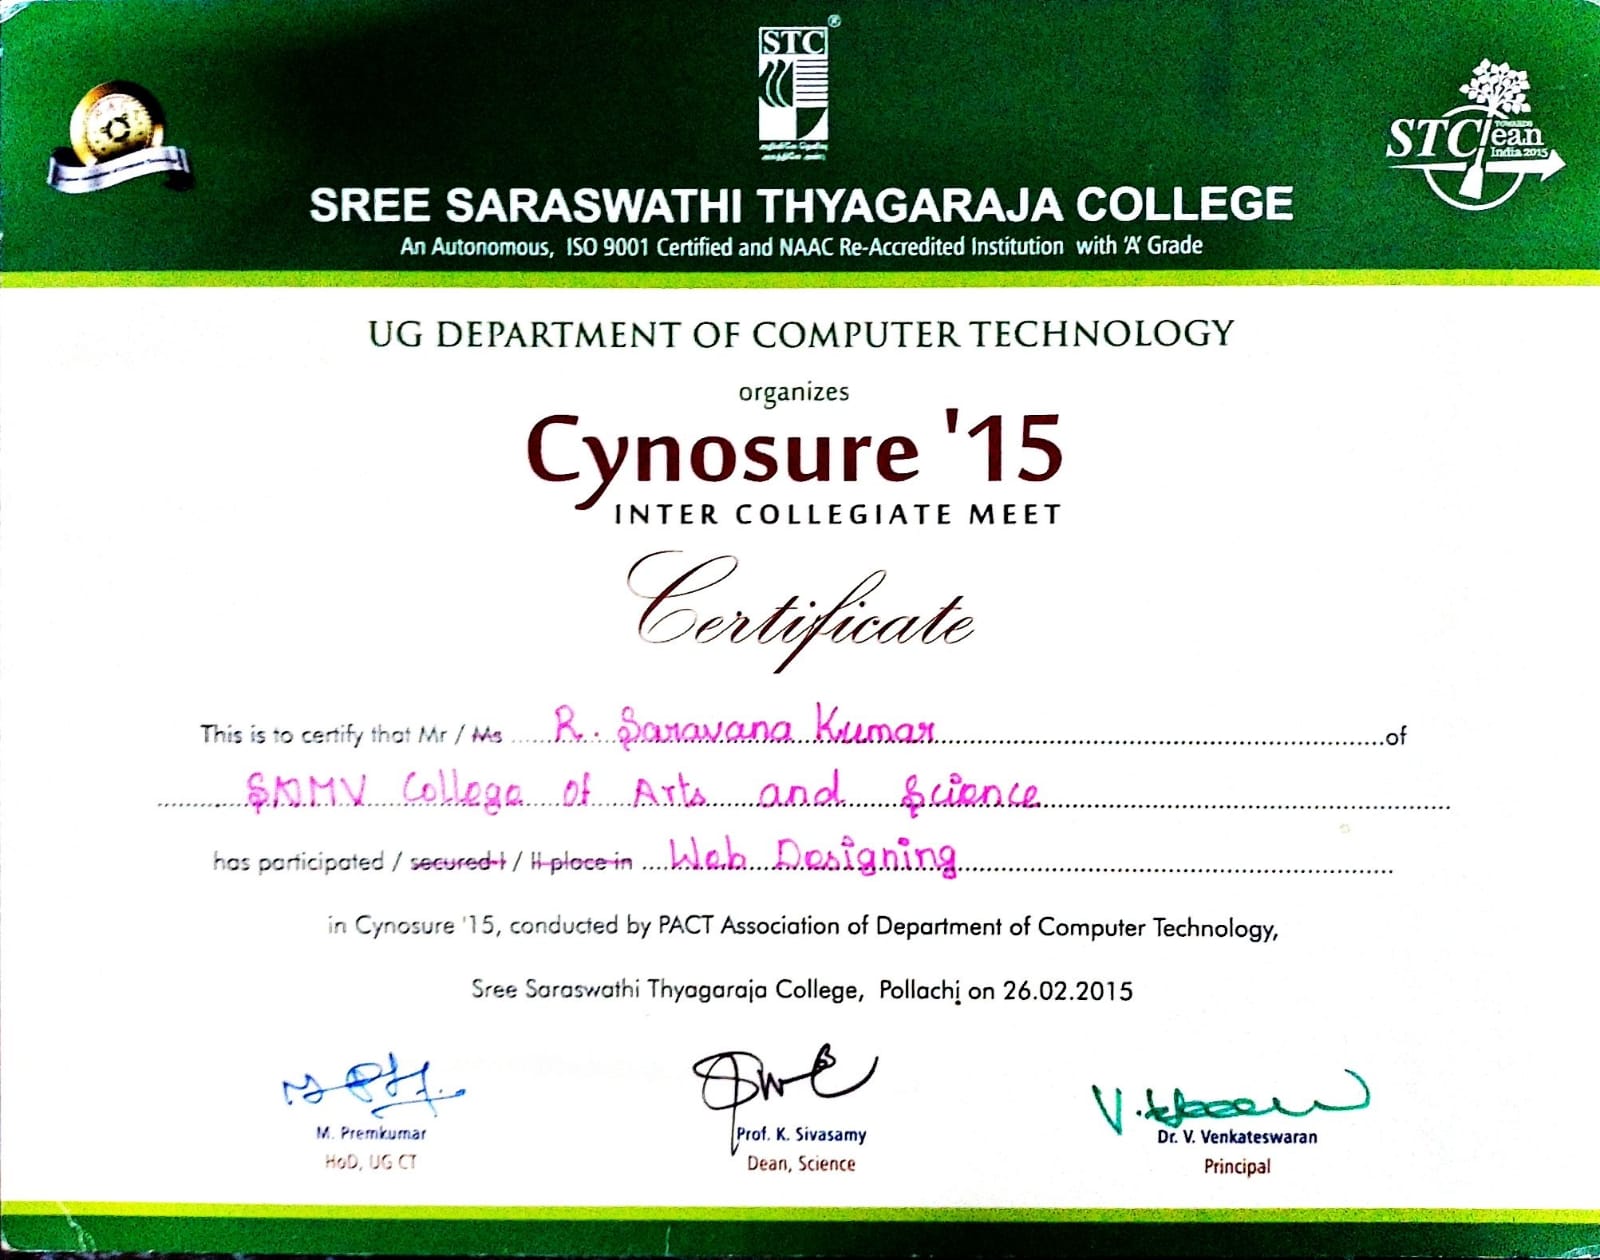 STC ®
STClean
TOWARDS
India 2015
SREE SARASWATHI THYAGARAJA COLLEGE
An Autonomous, ISO 9001 Certified and NAAC Re-Accredited Institution with 'A' Grade
UG DEPARTMENT OF COMPUTER TECHNOLOGY
organizes
Cynosure '15
INTER COLLEGIATE MEET
Certificate
This is to certify that Mr / Ms R. Saravana Kumar of
SNMV College of Arts and Science
has participated / secured I / II place in Web Designing
in Cynosure '15, conducted by PACT Association of Department of Computer Technology,
Sree Saraswathi Thyagaraja College, Pollachi on 26.02.2015
M. Premkumar
HoD, UG CT
Prof. K. Sivasamy
Dean, Science
Dr. V. Venkateswaran
Principal